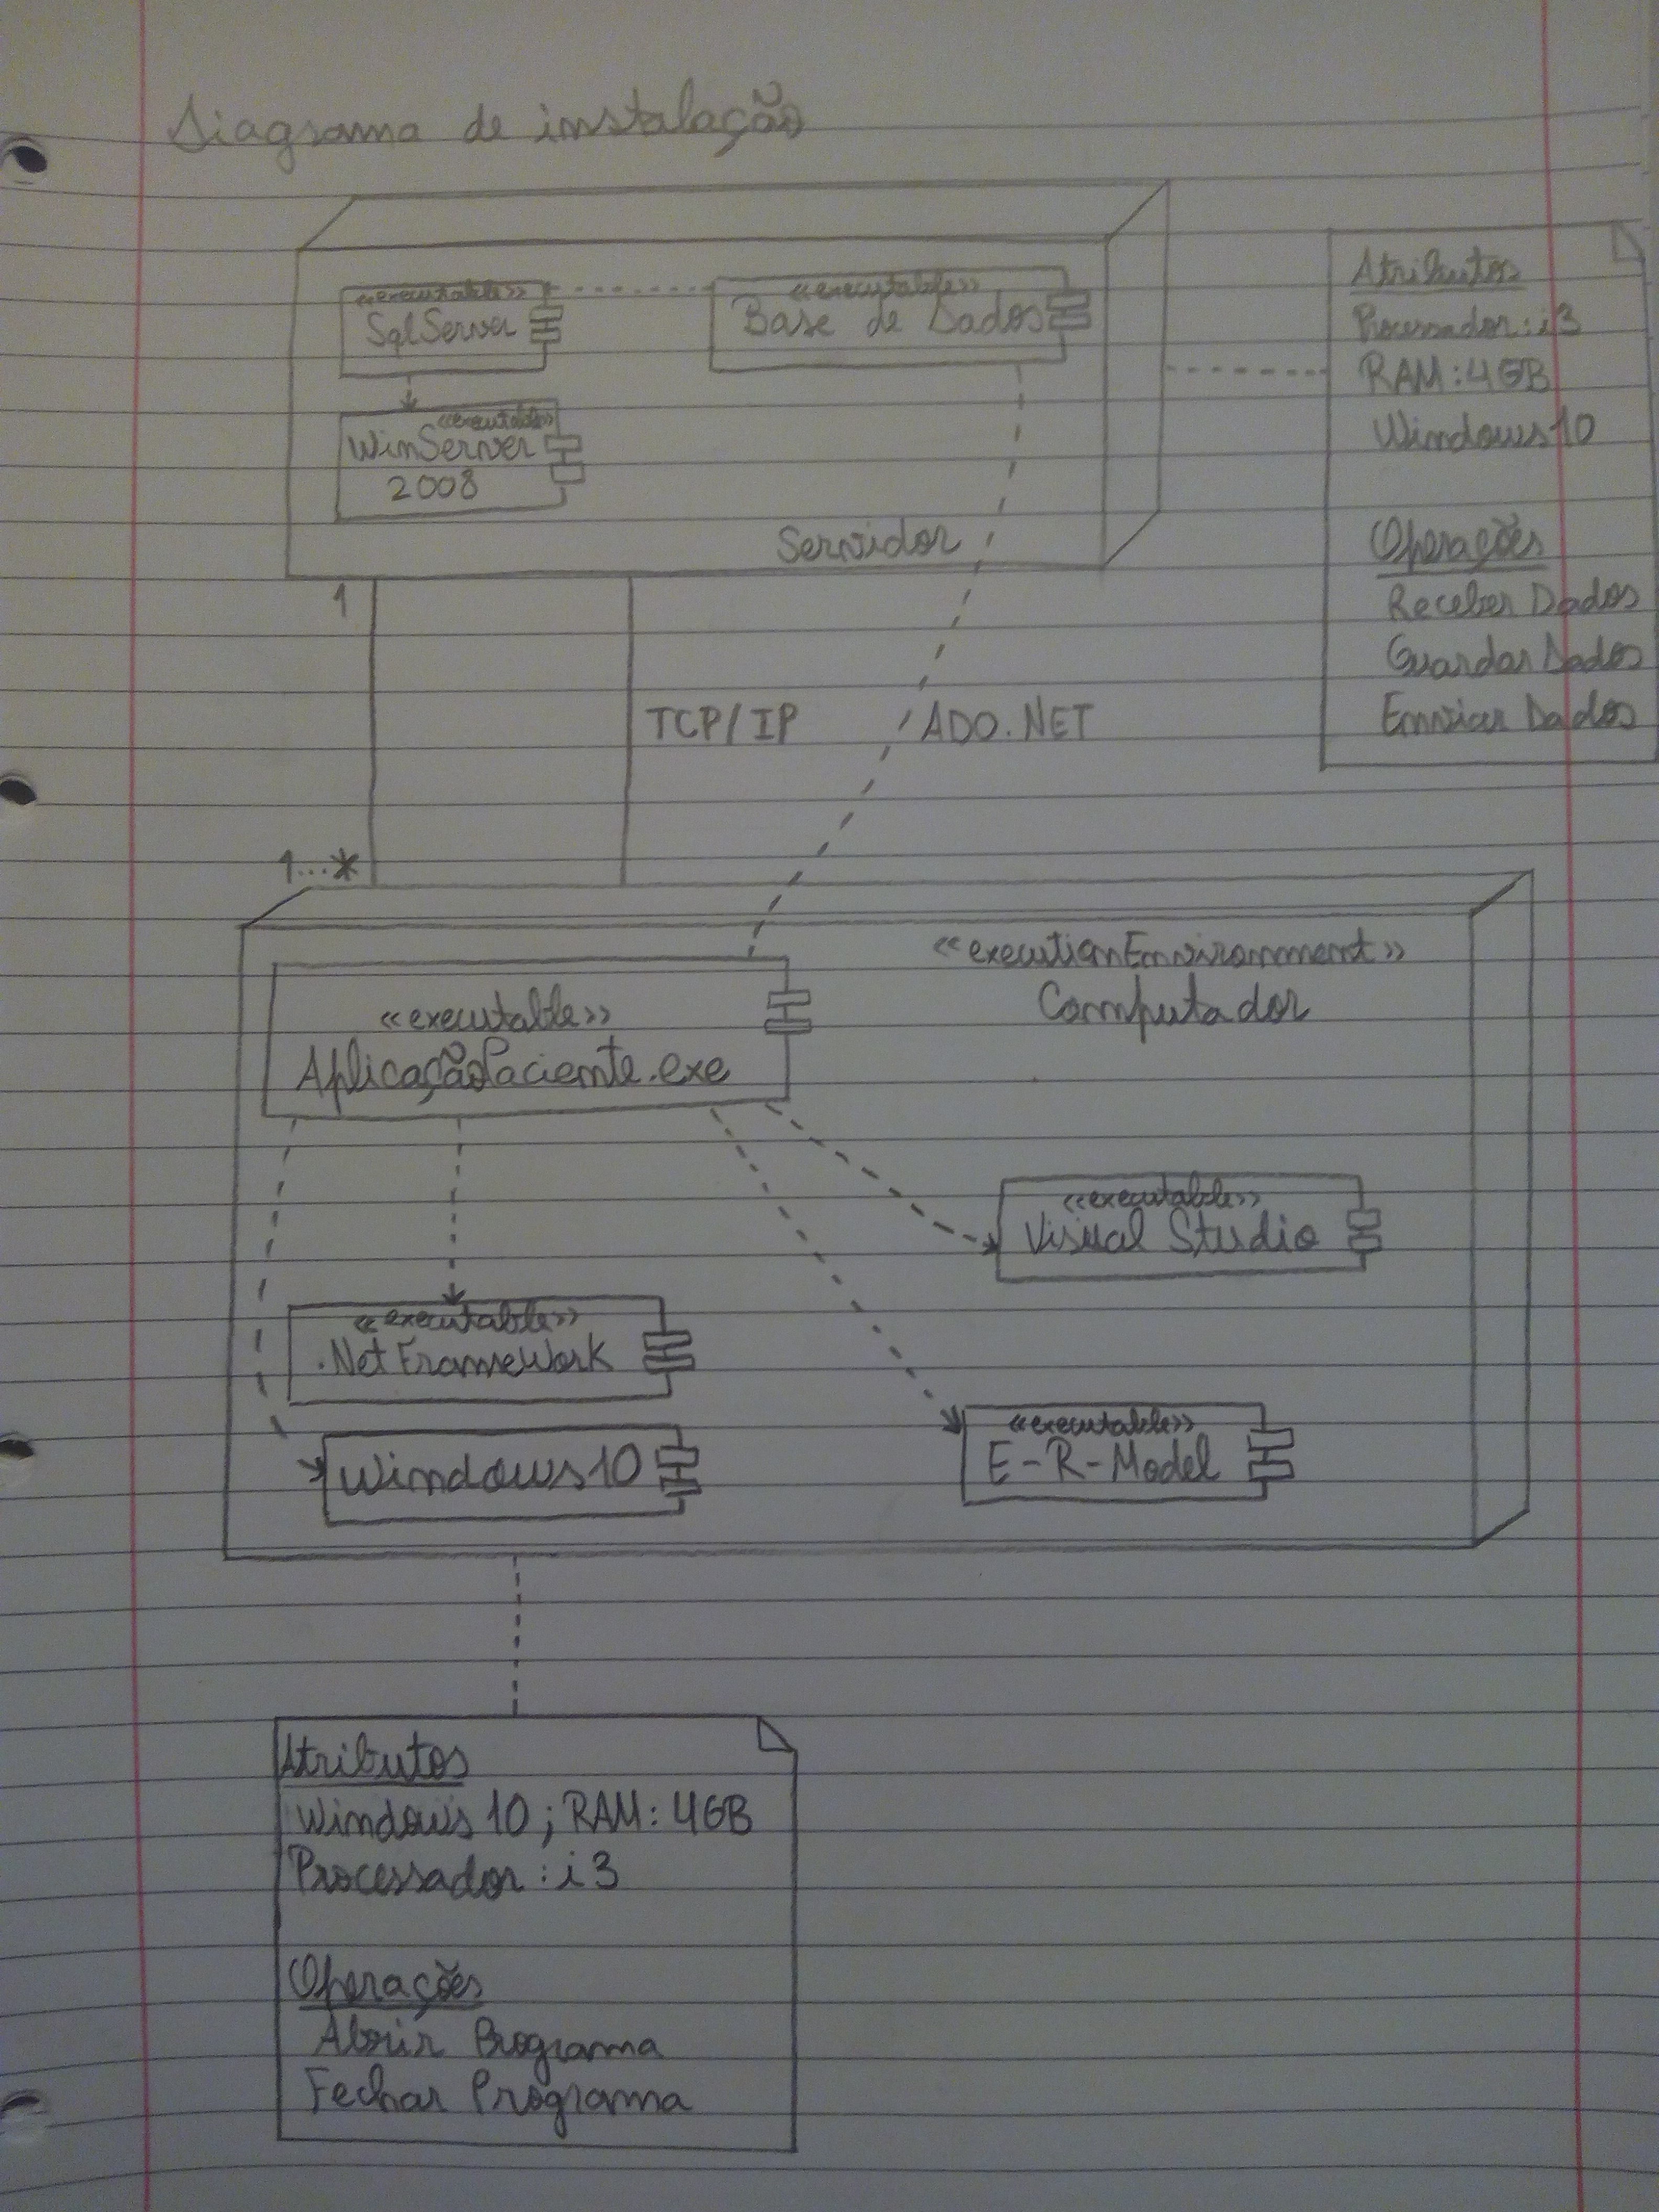 Diagrama de instalação
<<executable>>
SqlServer
<<executable>>
Base de Dados
<<executable>>
WinServer
2008
Servidor
Atributos
Processador: i3
RAM: 4GB
Windows 10
Operações
Receber Dados
Guardar Dados
Enviar Dados
1
TCP/IP
ADO.NET
1...*
<<executionEnvironment>>
Computador
<<executable>>
AplicaçãoPaciente.exe
<<executable>>
Visual Studio
<<executable>>
.Net FrameWork
<<executable>>
E-R-Model
Windows10
Atributos
Windows 10; RAM: 4GB
Processador: i3
Operações
Abrir Programa
Fechar Programa